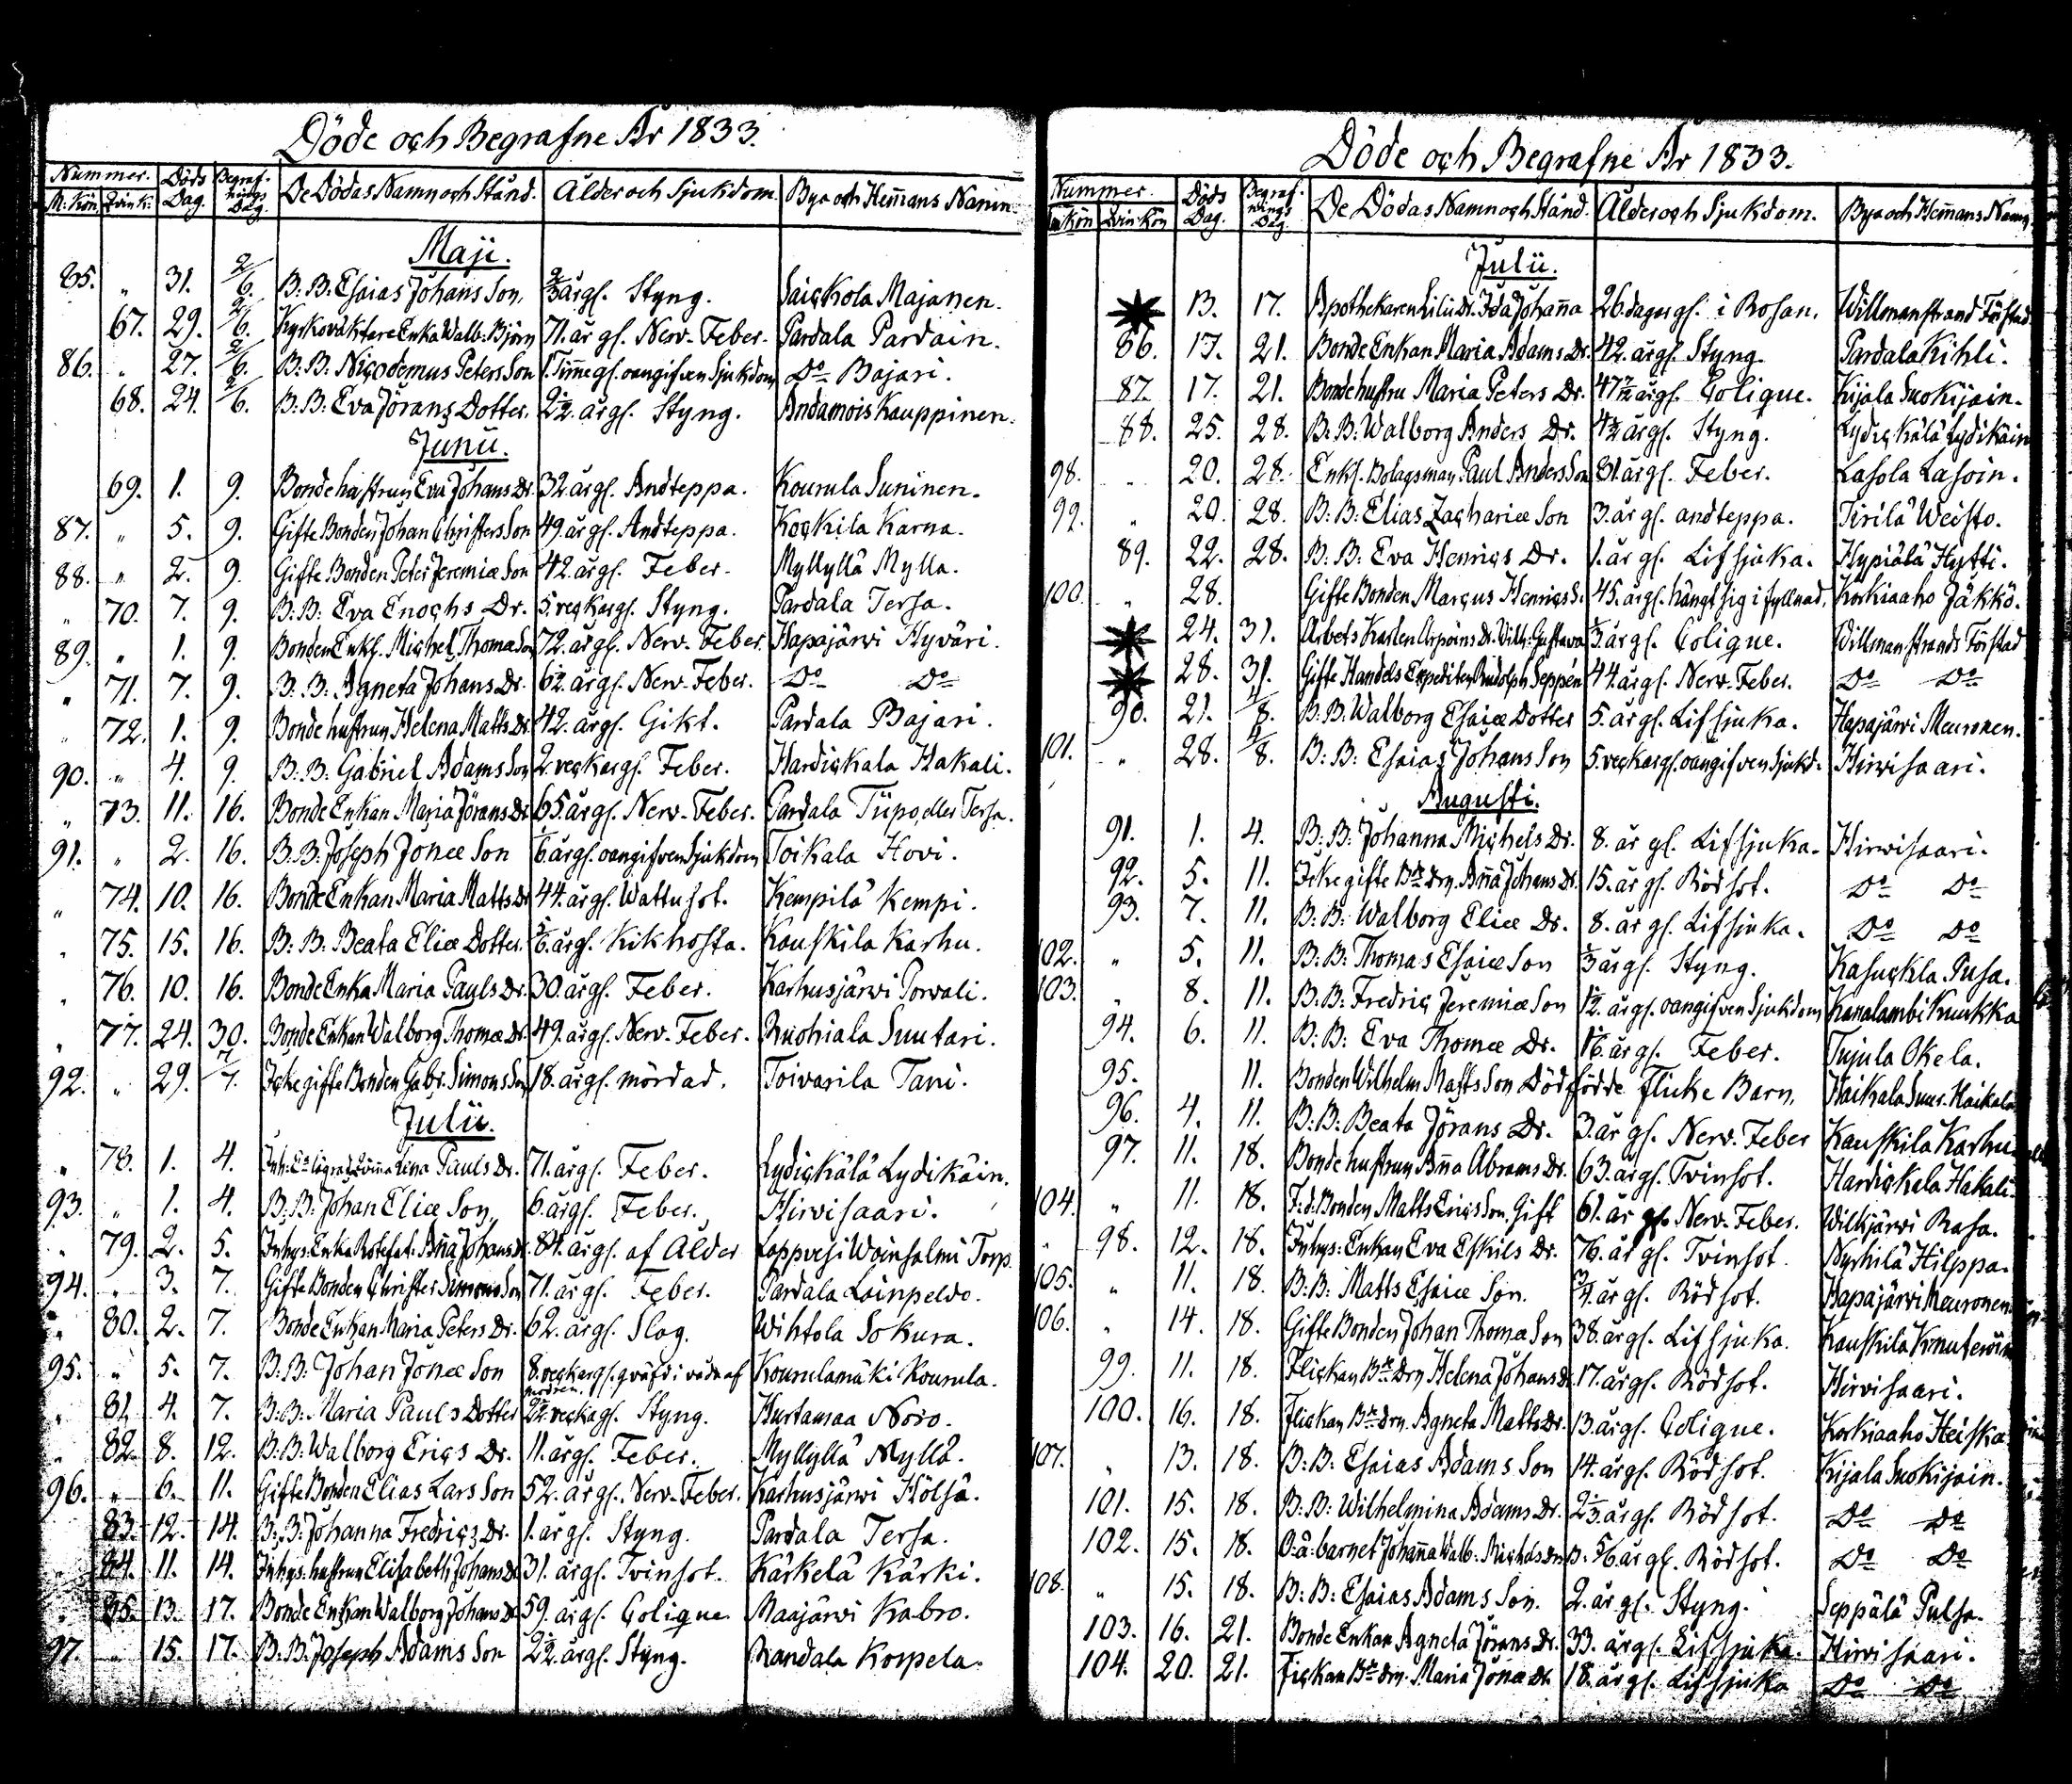 Döde och Begrafne År 1833.
Nummer. Döds Dag. Begrafnings Dag. De Dödas Namn och Stånd. Ålder och Sjukdom. Bya och Hem̄ans Namn.
M: Kön Qvin k:
Maji.
85. " 31. 2/6. B. B. Esaias Johans Son, 2/3 årgl. Styng. Saickola Majanen.
67. 29. 2/6. Kyrkovaktare Enka Walb: Björn 71. år gl. Nerv-Feber. Pardala Pardain.
86. " 27. 2/6. B. B. Nicodemus Peters Son 1. Tim̄e gl. oangifven Sjukdom Do Bajari.
68. 24. 2/6. B. B: Eva Jörans Dotter. 2½. årgl. Styng. Andamois Kauppinen.
Junii.
69. 1. 9. Bondehustrun Eva Johans Dr. 32. årgl. Andteppa. Kourula Suninen.
87. " 5. 9. Gifte Bonden Johan Christers Son 49. årgl. Andteppa. Kockila Karna.
88. " 2. 9. Gifte Bonden Peter Jeremiæ Son 42. årgl. Feber. Myllylä Mylla.
" 70. 7. 9. B: B: Eva Enochs Dr. 5. veckargl. Styng. Pardala Tersa.
89. " 1. 9. Bonden Enkl. Michel Thomæ Son 72. årgl. Nerv-Feber. Hapajärwi Hyväri.
" 71. 7. 9. B: B: Agneta Johans Dr. 6½. årgl. Nerv-Feber. Do Do
" 72. 1. 9. Bonde hustrun Helena Matts Dr. 42. årgl. Gikt. Pardala Bajari.
90. " 4. 9. B: B: Gabriel Adams Son 2. veckargl. Feber. Hardickala Hakali.
" 73. 11. 16. Bonde Enkan Maria Jörans Dr. 65. årgl. Nerv-Feber. Pardala Tiipo, eller Tersa.
91. " 2. 16. B. B: Joseph Jonæ Son 1/6. årgl. oangifven Sjukdom Toikala Hovi.
" 74. 10. 16. Bonde Enkan Maria Matts Dr 44. årgl. Wattusot. Kempilä Kempi.
" 75. 15. 16. B: B: Beata Eliæ Dotter. 5/6. årgl. Kikhosta. Kauskila Karhu.
" 76. 10. 16. Bonde Enka Maria Pauls Dr. 30. årgl. Feber. Karhusjärwi Porvali.
" 77. 24. 30. Bonde Enkan Walborg Thomæ Dr. 49. årgl. Nerv-Feber. Ruohiala Suutari.
92. " 29. 7/7. Icke gifte Bonden Gabr: Simons Son 18. årgl. mördad. Toivarila Tani.
Julii.
" 78. 1. 4. Pauls Dr. 71. årgl. Feber. Lydickälä Lydikäin.
93. " 1. 4. B. B: Johan Eliæ Son, 6. årgl. Feber. Hirvisaari.
" 79. 2. 5. Inhys: Enka An̄a Johans Dr. 84. årgl. af Ålder Lappvesi Woinsalmi Torp.
94. " 3. 7. Gifte Bonden Christer Simons Son 71. årgl. Feber. Pardala Lainpeldo.
" 80. 2. 7. Bonde Enkan Maria Peters Dr. 62. årgl. Slag. Wihtola Sokura.
95. " 5. 7. B: B: Johan Jonæ Son 8. veckargl. qväfd i våda af modren. Kourulamäki Kourula.
" 81. 4. 7. B: B: Maria Pauls Dotter 2½ veckagl. Styng. Hurtamaa Novo.
" 82. 8. 12. B: B: Walborg Erics Dr. 11. årgl. Feber. Myllylä Myllä.
96. " 6. 11. Gifte Bonden Elias Lars Son 52. årgl. Nerv-Feber. Karhusjärwi Hölsä.
83. 12. 14. B: B: Johanna Fredrics Dr. 1. årgl. Styng. Pardala Tersa.
84. 11. 14. Inhys. hustrun Elisabeth Johans Dr 31. årgl. Tvinsot. Kärkelä Kärki.
85. 13. 17. Bonde Enkan Walborg Johans Dr 59. årgl. Colique. Maajärwi Kabro.
97. " 15. 17. B. B. Joseph Adams Son 2½. årgl. Styng. Randala Korpela.
Döde och Begrafne År 1833.
Nummer. Döds Dag. Begrafnings Dag. De Dödas Namn och Stånd. Ålder och Sjukdom. Bya och Hem̄ans Namn
M kön Qvin kön
Julii.
13. 17. Apothekaren Dr. Ida Johan̄a 26. dagar gl. i Rosan. Willmanstrand Förstad
86. 17. 21. Bonde Enkan Maria Adams Dr. 42. årgl. Styng. Pardala Kihli.
87. 17. 21. Bondehustru Maria Peters Dr. 47½ årgl. Colique. Kijala Suokijain.
88. 25. 28. B: B: Walborg Anders Dr. 4½ årgl. Styng. Lydickälä Lydikäin
98. " 20. 28. Enkl. Bolagsman Paul Anders Son 31. årgl. Feber. Lasola Lasoin.
99. " 20. 28. B: B: Elias Zachariæ Son 3. år gl. andteppa. Tirilä Weisto.
89. 22. 28. B: B: Eva Henrics Dr. 1. år gl. Lifsjuka. Hypiälä Hytti.
100. " 28. Gifte Bonden Marcus Henrics S. 45. årgl. hängt sig i fyllnad. Korkiaaho Jäkkö.
24. 31. Arbets Karlen Dr. Wilh: Gustava ⅓ årgl. Colique. Willmanstrands Förstad
28. 31. Gifte Handels Expediten Rudolph Seppén 44. årgl. Nerv-Feber. Do Do
90. 21. 4/8. B: B. Walborg Esaiæ Dotter 5. år gl. Lifsjuka. Hapajärwi Meuronen.
101. " 28. 4/8. B: B: Esaias Johans Son 5. veckargl. oangifven Sjukd. Hirvisaari.
Augusti.
91. 1. 4. B: B: Johanna Michels Dr. 8. år gl. Lifsjuka. Hirvisaari.
92. 5. 11. Icke gifte Bde drn. An̄a Johans Dr. 15. år gl. Rödsot. Do Do
93. 7. 11. B: B: Walborg Eliæ Dr. 8. år gl. Lifsjuka. Do Do
102. " 5. 11. B: B: Thomas Esaiæ Son ⅓ årgl. Styng. Kasuckla Pusa.
103. " 8. 11. B: B: Fredric Jeremiæ Son 1½. årgl. oangifven Sjukdom Kanalambi Kuukka
94. 6. 11. B: B: Eva Thomæ Dr. 1/6. årgl. Feber. Tujula Okela.
95. 11. Bonden Wilhelm Matts Son Dödfödde flicke Barn, Haikala Suur-Haikala
96. 4. 11. B: B: Beata Jörans Dr. 3. år gl. Nerv-Feber Kauskila Karhu
97. 11. 18. Bondehustrun An̄a Abrams Dr. 63. årgl. Tvinsot. Hardickala Hakali.
104. " 11. 18. F. d. Bonden Matts Erics Son Gift 61. år gl. Nerv-Feber. Wilkjärwi Rasa.
98. 12. 18. Inhys: Enkan Eva Eskils Dr. 76. år gl. Tvinsot. Nyrhilä Hilppa.
105. " 11. 18. B: B: Matts Esaiæ Son. ¾. år gl. Rödsot. Hapajärwi Meuronen
106. " 14. 18. Gifte Bonden Johan Thomæ Son 38. årgl. Lifsjuka. Kauskila
99. 11. 18. Flickan Bde Drn Helena Johans Dr. 17. årgl. Rödsot. Hirvisaari.
100. 16. 18. Flickan Bde drn. Agneta Matts Dr. 13. årgl. Colique. Korkiaaho Heiska
107. " 13. 18. B: B: Esaias Adams Son 14. årgl. Rödsot. Kijala Suokijain.
101. 15. 18. B: B: Wilhelmina Adams Dr. 2⅓ årgl. Rödsot. Do Do
102. 15. 18. O: ä: barnet Johan̄a Walb. Michels Dr 5/6 årgl. Rödsot. Do Do
108. " 15. 18. B: B: Esaias Adams Son. 2. år gl. Styng. Seppälä Pulsa.
103. 16. 21. Bonde Enkan Agneta Jörans Dr. 33. årgl. Lifsjuka. Hirvisaari.
104. 20. 21. Flickan Bde drn. Maria Jonæ Dr. 18. år gl. Lifsjuka Do Do